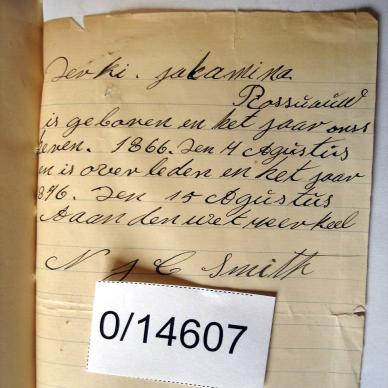 Derki. jakamina
Rossuauw
is geboren en het jaar onss
leven. 1866. Den 4 Agustus
en is over leden en het jaar
1896. Den 15 Agustus
Aaan den wet
N J C Smith
0/14607